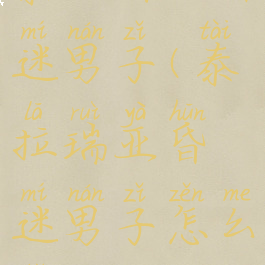 mí nán zǐ tài
迷男子(泰
lā ruì yà hūn
拉瑞亚昏
mí nán zǐ zěn me
迷男子怎么